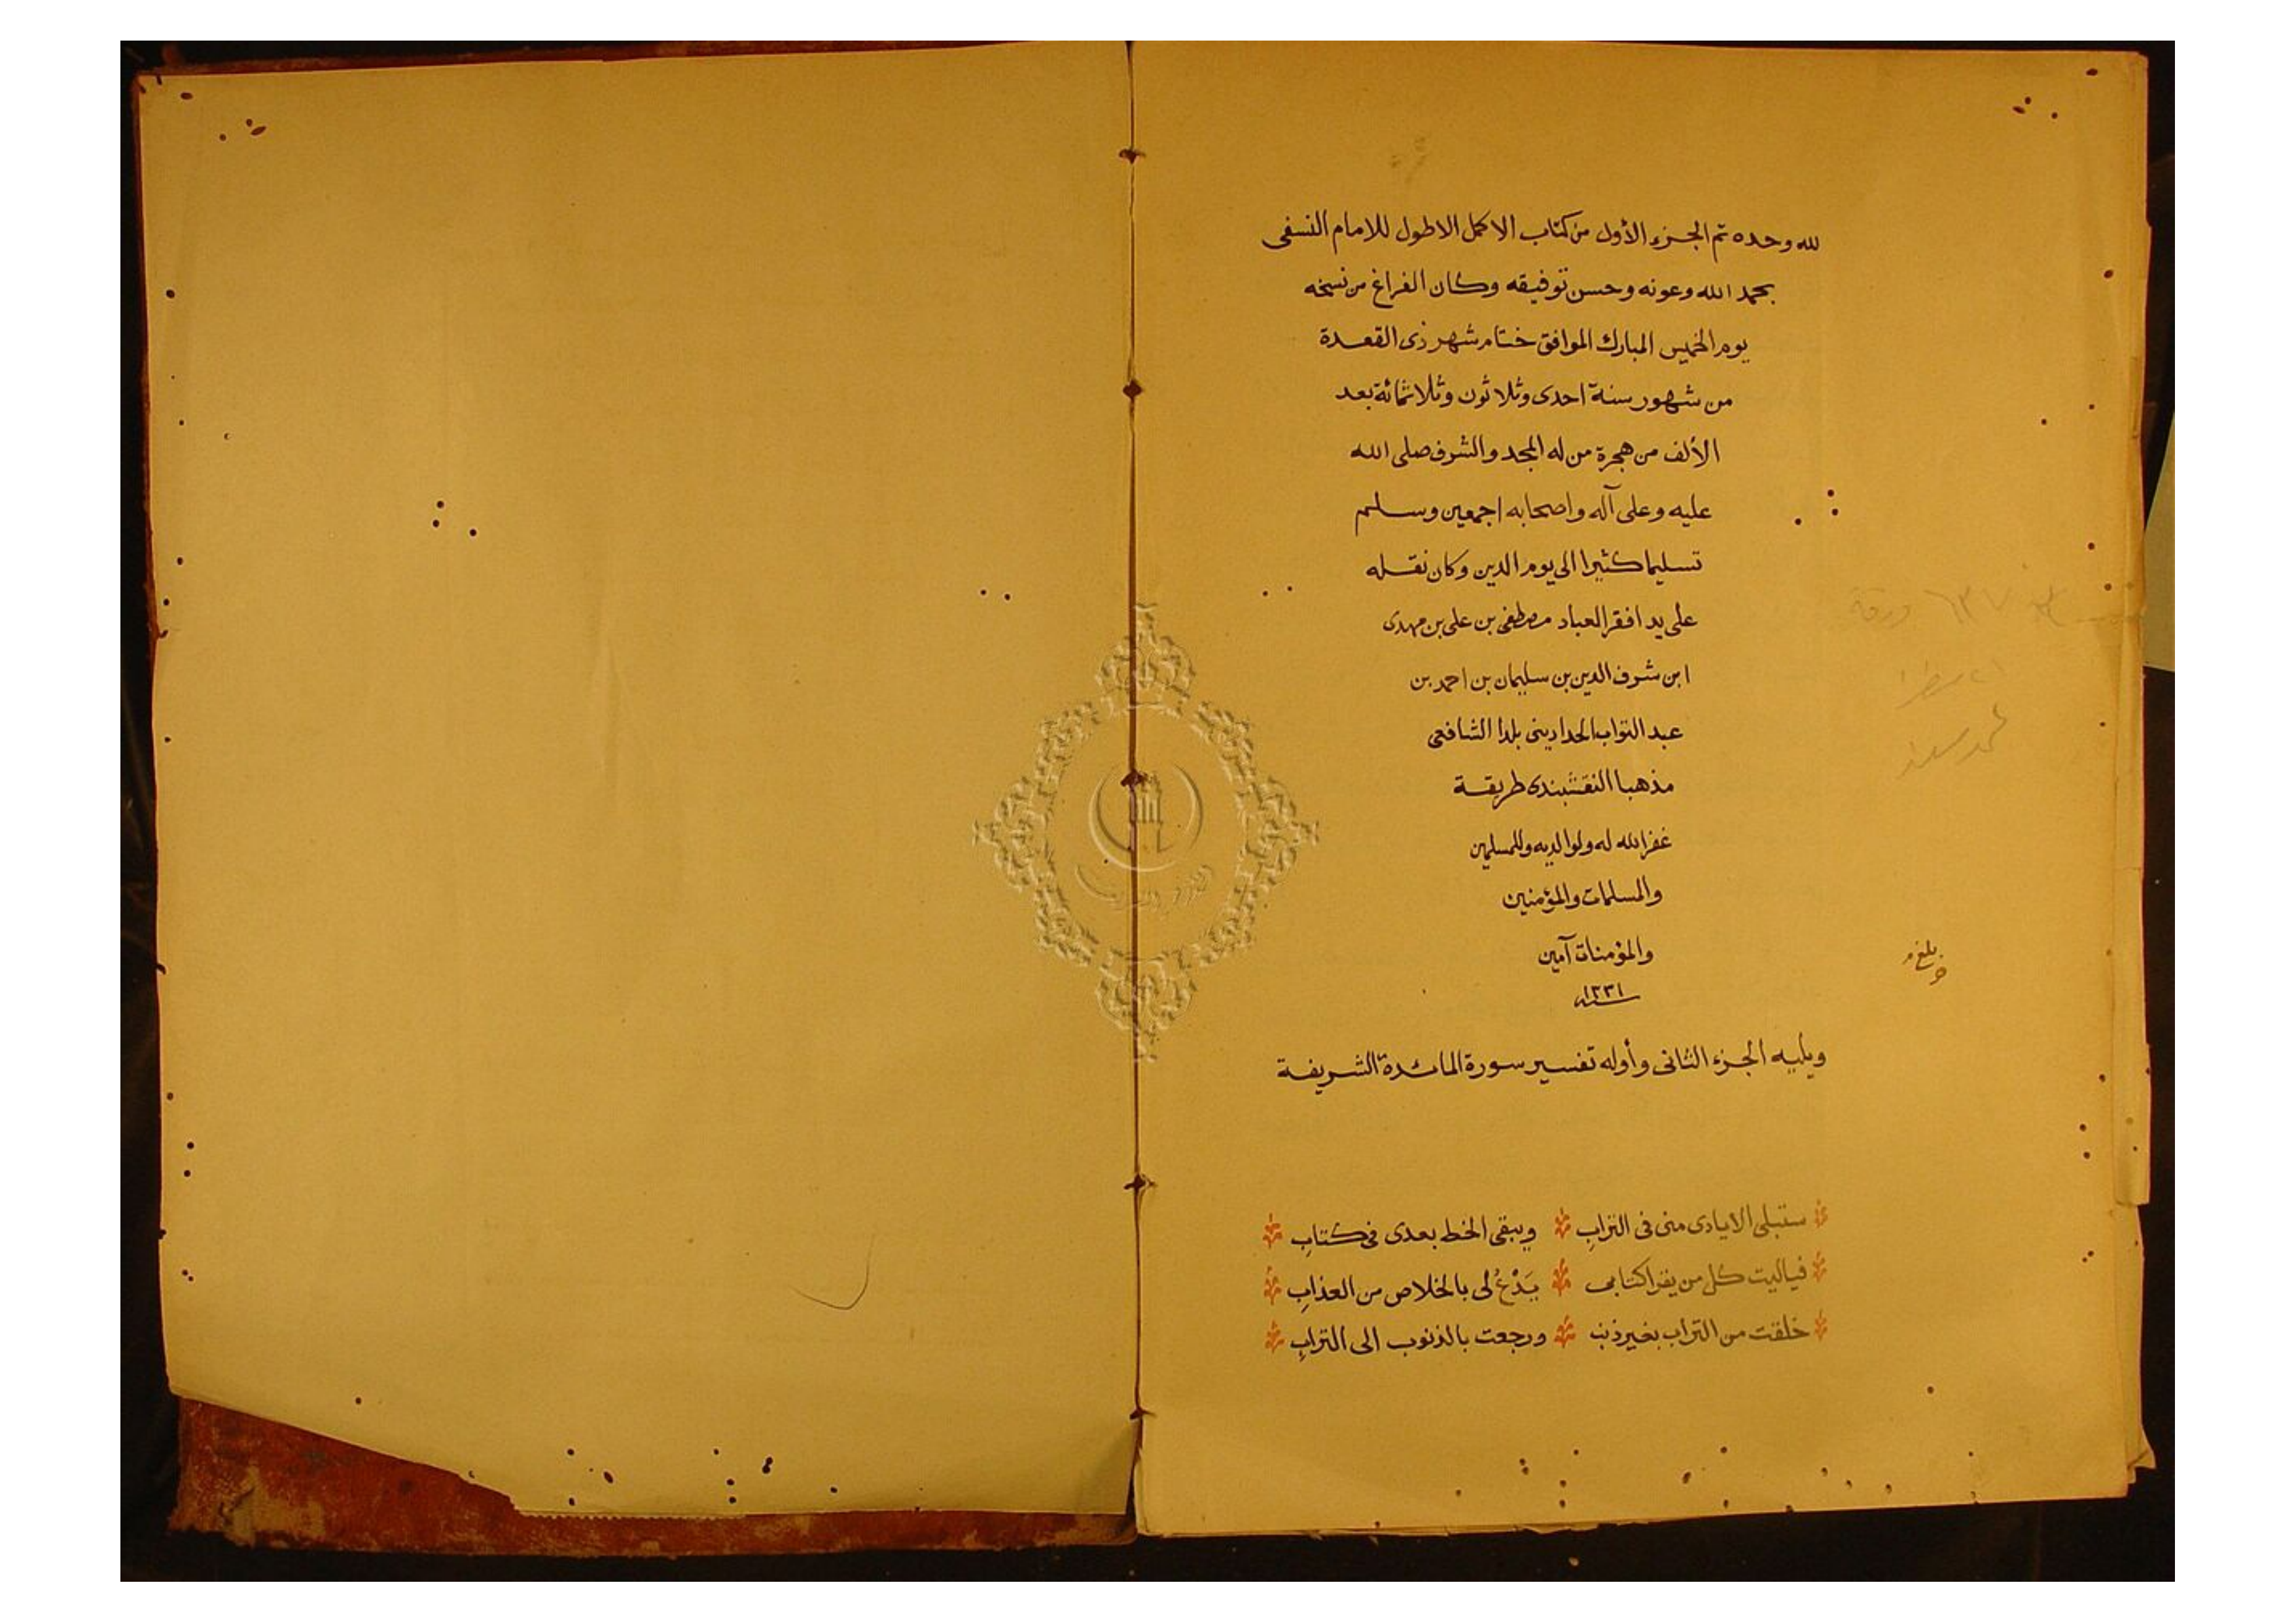 لله وحده تم الجزء الأول من كتاب الاكمل الاطول للامام النسفى
بحمد الله وعونه وحسن توفيقه وكان الفراغ من نسخه
يوم الخميس المبارك الموافق ختام شهر ذى القعدة
من شهور سنة احدى وثلاثون وثلاثمائة بعد
الألف من هجرة من له المجد والشرف صلى الله
عليه وعلى آله واصحابه اجمعين وسلم
تسليما كثيرا الى يوم الدين وكان نقله
على يد افقر العباد مصطفى بن على بن مهدى
ابن شرف الدين بن سليمان بن احمد بن
عبد التواب الحدادينى بلدا الشافعى
مذهبا النقشبندى طريقة
غفر الله له ولوالديه وللمسلمين
والمسلمات والمؤمنين
والمؤمنات آمين
سنة ١٣٣١
ويليه الجزء الثانى وأوله تفسير سورة المائدة الشريفة
ستبلى الايادى منى فى الترابِ ويبقى الخط بعدى فى كتابِ
فياليت كل من يقرا كتابى يَدْعُ لى بالخلاص من العذابِ
خلقت من التراب بغير ذنب ورجعت بالذنوب الى الترابِ
ورقة
بلغ